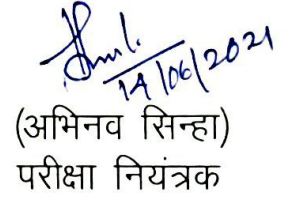 14/06/2021
(अभिनव सिन्हा)
परीक्षा नियंत्रक